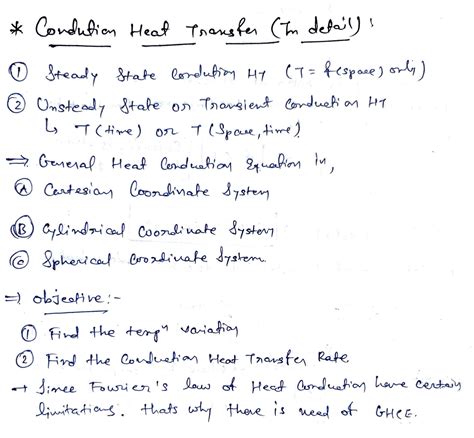 * Condution Heat Transfer (In detail):
① Steady State Conduction HT (T = f(space) only)
② Unsteady State or Transient Conduction HT
↳ T(time) or T(Space, time)
⇒ General Heat Conduction Equation in,
Ⓐ Cartesian Coordinate System
Ⓑ Cylindrical Coordinate System
Ⓒ Spherical coordinate System
⇒ Objective:-
① Find the tempⁿ variation
② Find the Conduction Heat Transfer Rate
→ Since Fourier's law of Heat Conduction have certain
limitations. thats why there is need of GHCE.